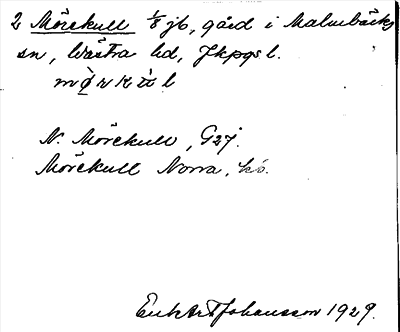 2 Mörekull 1/8 jb, gård i Malmbäcks
sn, Västra hd, Jkpgs l.
N. Mörekull, G27.
Mörekull Norra, kö.
Johansson 1929.